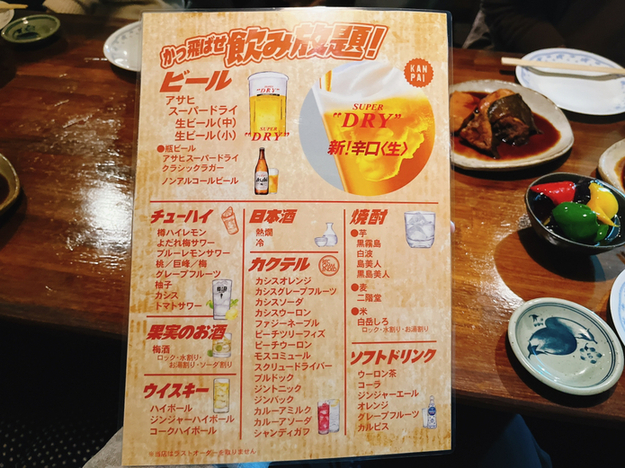 かっ飛ばせ飲み放題!
KAN
PAI
ビール
アサヒ
スーパードライ
生ビール(中)
生ビール(小)
●瓶ビール
アサヒスーパードライ
クラシックラガー
ノンアルコールビール
"DRY"
SUPER
"DRY"
SUPER
"DRY"
新!辛口〈生〉
チューハイ
樽ハイレモン
よだれ梅サワー
ブルーレモンサワー
桃/巨峰/梅
グレープフルーツ
柚子
カシス
トマトサワー
果実のお酒
梅酒
ロック・水割り・
お湯割り・ソーダ割り
ウイスキー
ハイボール
ジンジャーハイボール
コークハイボール
日本酒
熱燗
冷
カクテル
カシスオレンジ
カシスグレープフルーツ
カシスソーダ
カシスウーロン
ファジーネーブル
ピーチツリーフィズ
ピーチウーロン
モスコミュール
スクリュードライバー
ブルドック
ジントニック
ジンバック
カルーアミルク
カルーアソーダ
シャンディガフ
焼酎
●芋
黒霧島
白波
島美人
黒島美人
●麦
二階堂
●米
白岳しろ
ロック・水割り・お湯割り
ソフトドリンク
ウーロン茶
コーラ
ジンジャーエール
オレンジ
グレープフルーツ
カルピス
※当店はラストオーダーを取りません